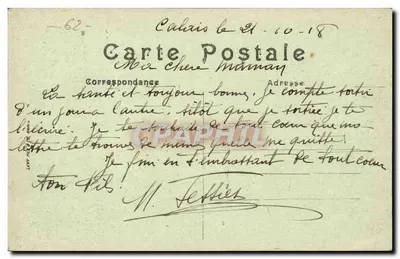 -62-
Calais le 21-10-18
Carte Postale
Ma chere maman
Correspondance
Adresse
La santé et toujour bonne, je compte sortir
d'un jour a l'autre sitôt que je sortiré je te
l'écriré. Je te de tout cœur que ma
lettre te trouve de meme quelle me quitte.
Je fini en t'embrassant de tout cœur
ton fils.
M. Tessier